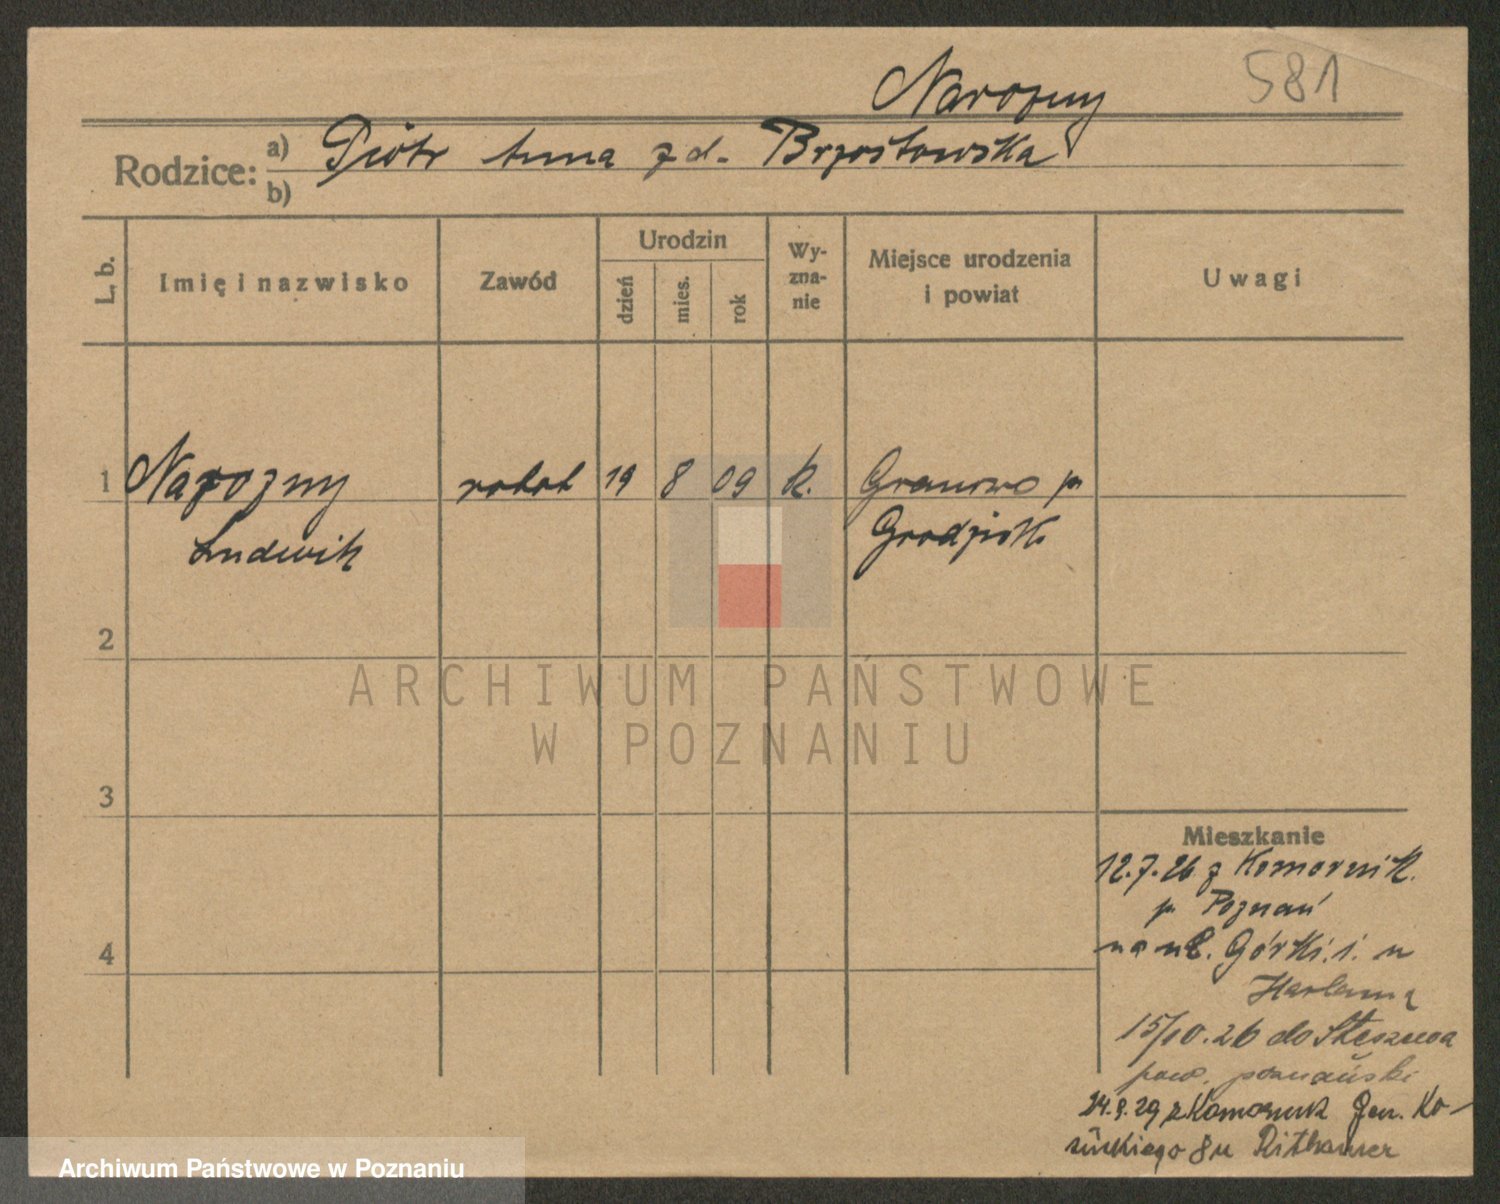 581
Narozny
Rodzice: a) Piotr Anna z d. Brzostowska
b)
L. b.
Imię i nazwisko
Zawód
Urodzin
dzień
mies.
rok
Wy-
zna-
nie
Miejsce urodzenia
i powiat
Uwagi
1 Narozny robot 19 8 09 k. Granowo p
Ludwik Grodzisk
2
ARCHIWUM PAŃSTWOWE
W POZNANIU
3
Mieszkanie
12.7.26 z Komornik.
p. Poznań
4
na ul. Górki.1. u
15/10.26 do Stęszewa
pow. poznański
24.9.29 z Komornik Gen. Ko-
sińskiego 8 u
Archiwum Państwowe w Poznaniu